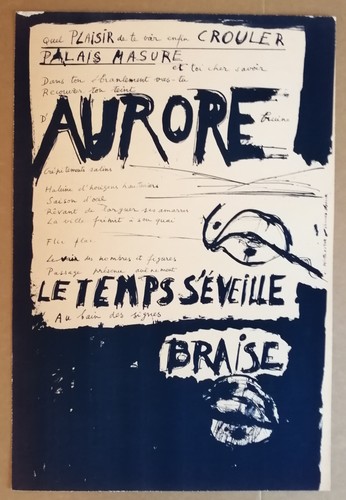 Quel PLAISIR de te voir enfin CROULER
PALAIS MASURE
et toi cher savoir
Dans ton ébranlement vas-tu
Recouvrer ton teint
D' AURORE
Crépitements salins
Haleine d'horizons
Saison d'exil
Rêvant de larguer ses amarres
La ville frémit à son quai
Flic flac
Le des nombres et figures
Passage présence
LE TEMPS S'ÉVEILLE
Au bain des signes
BRAISE